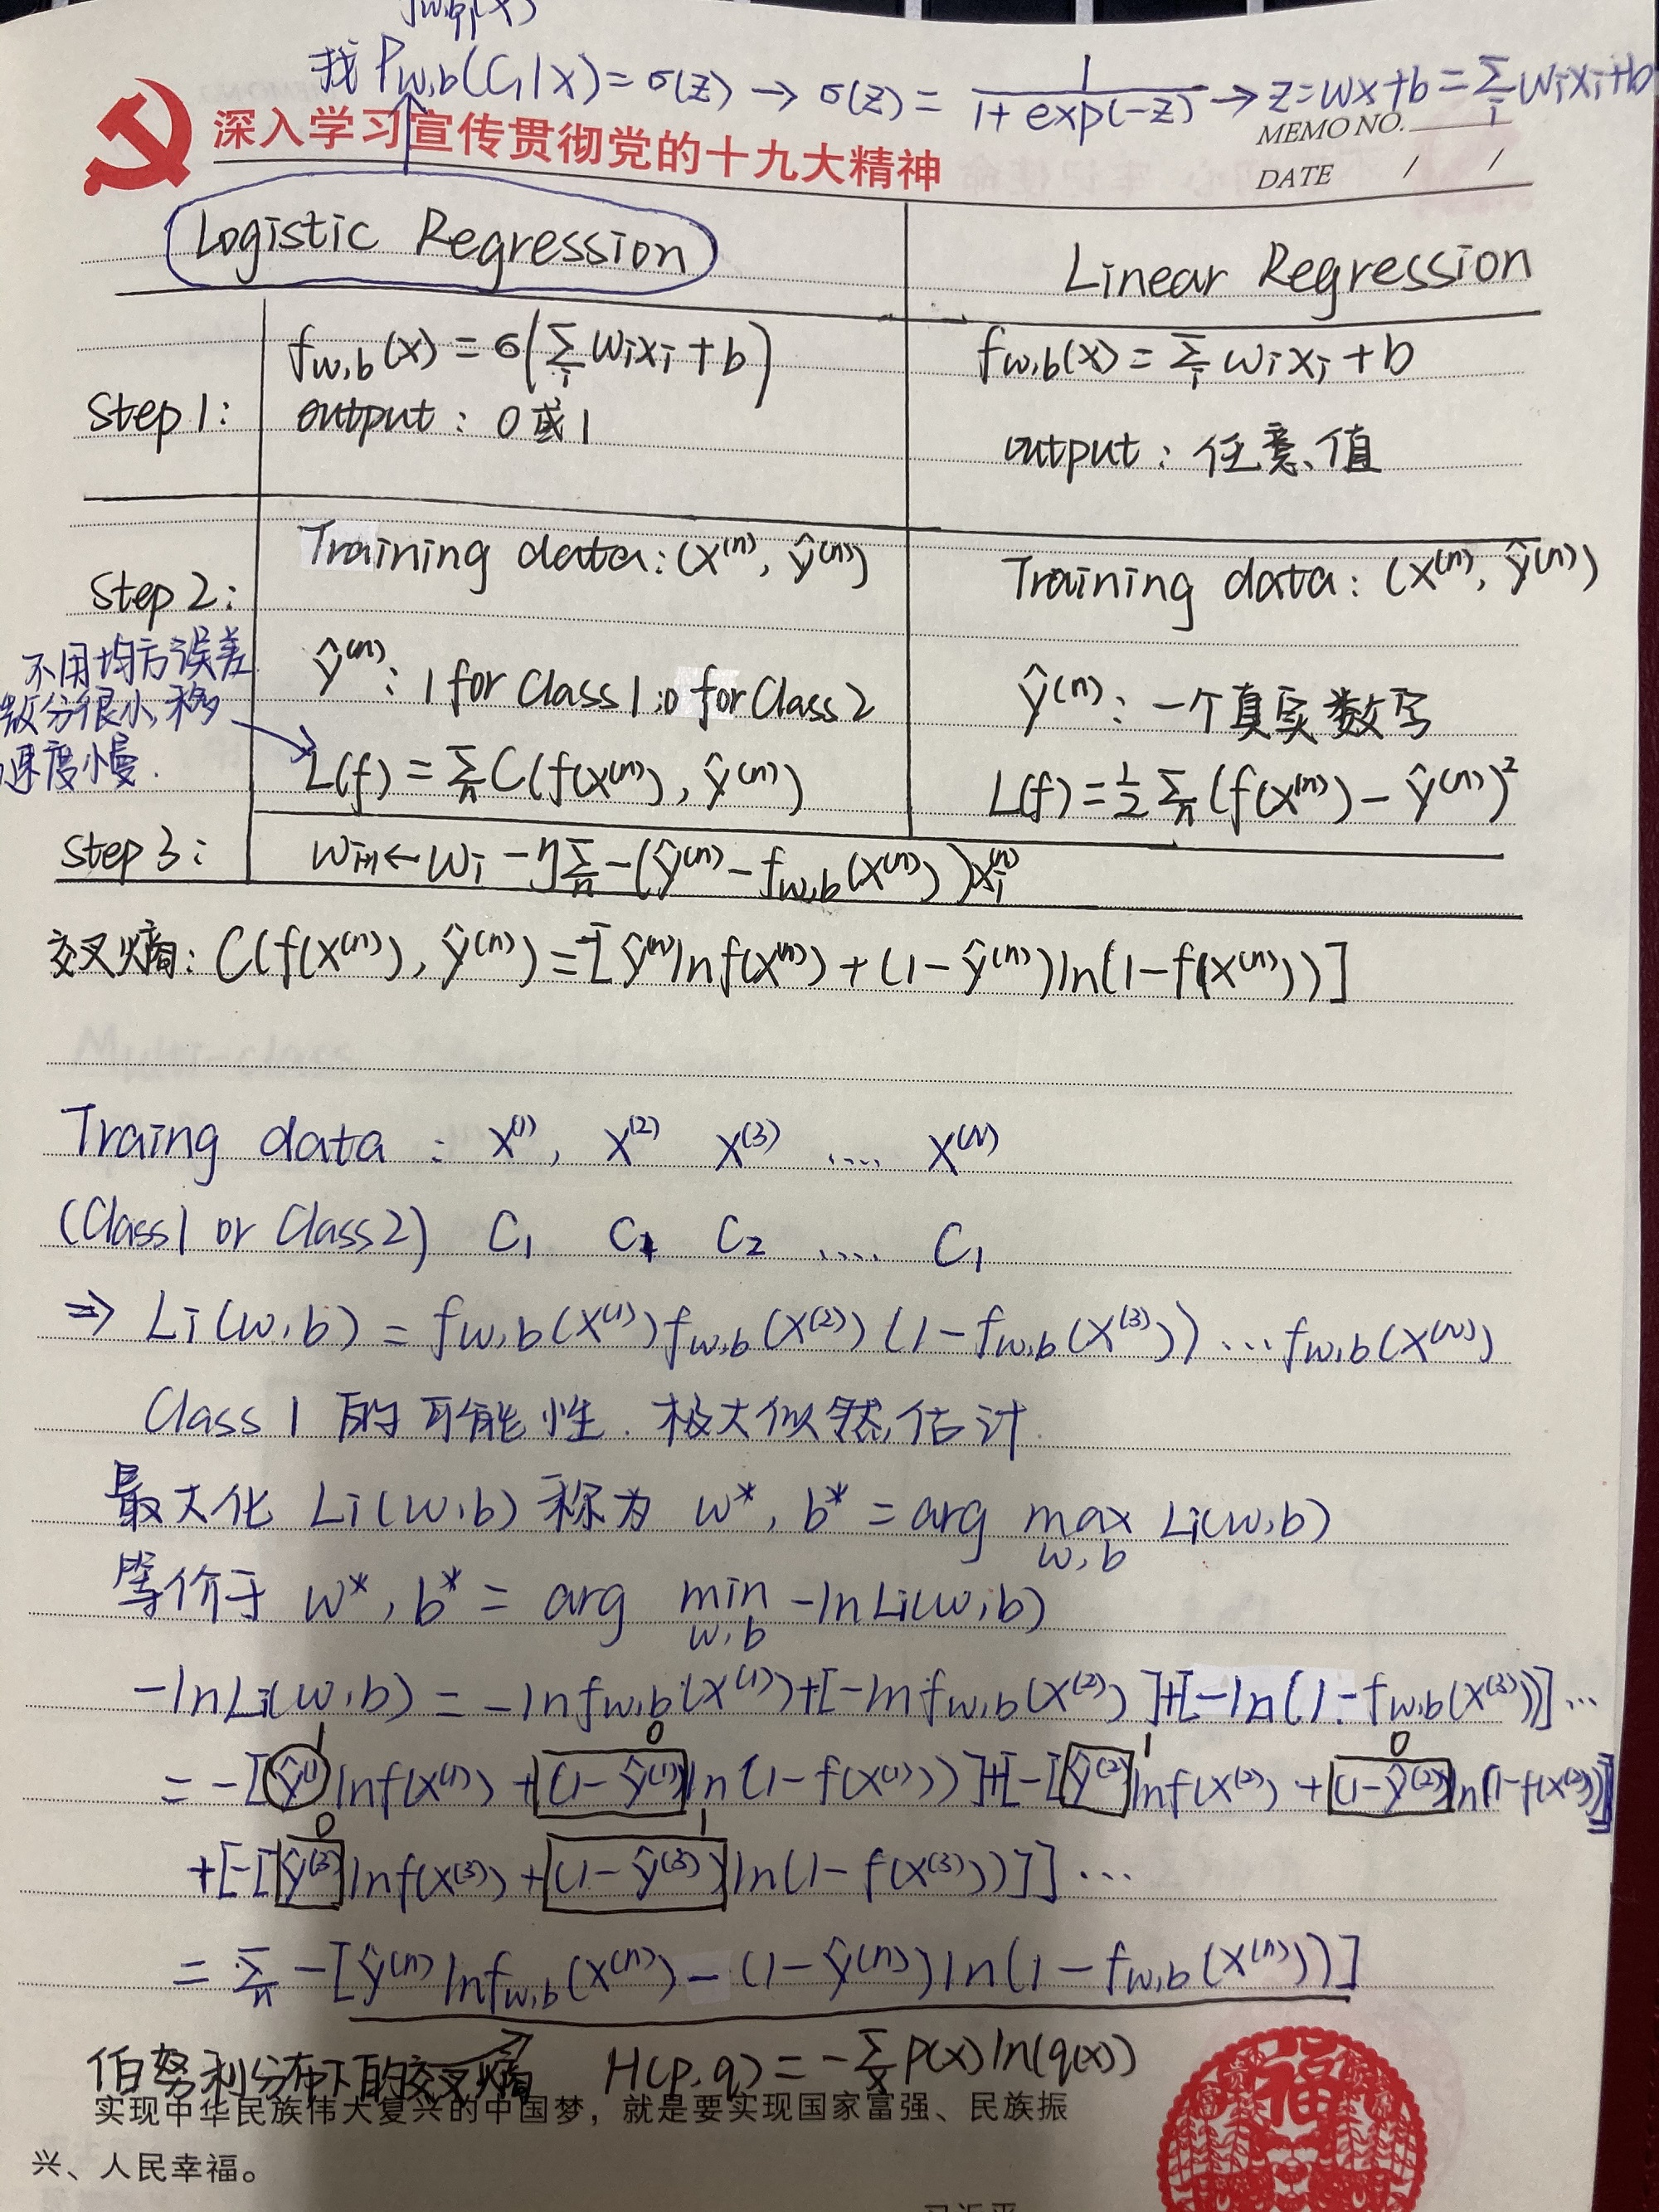 找 Pw,b(C1|x) = σ(z) → σ(z) = 1/(1+exp(-z)) → z = wx+b = Σi wixi+b
MEMO NO.
深入学习宣传贯彻党的十九大精神
DATE / /
Logistic Regression
Linear Regression
Step 1:
fw,b(x) = σ(Σi wixi + b)
output : 0 或 1
fw,b(x) = Σi wixi + b
output : 任意值
Step 2:
Training data: (x⁽ⁿ⁾, ŷ⁽ⁿ⁾)
ŷ⁽ⁿ⁾: 1 for Class 1; 0 for Class 2
L(f) = Σn C(f(x⁽ⁿ⁾), ŷ⁽ⁿ⁾)
Training data: (x⁽ⁿ⁾, ŷ⁽ⁿ⁾)
ŷ⁽ⁿ⁾: 一个真实数字
L(f) = 1/2 Σn (f(x⁽ⁿ⁾) - ŷ⁽ⁿ⁾)²
不用均方误差
微分很小,移
速度慢.
Step 3:
wi+1 ← wi - η Σn -(ŷ⁽ⁿ⁾ - fw,b(x⁽ⁿ⁾))xi⁽ⁿ⁾
交叉熵: C(f(x⁽ⁿ⁾), ŷ⁽ⁿ⁾) = -[ŷ⁽ⁿ⁾lnf(x⁽ⁿ⁾) + (1-ŷ⁽ⁿ⁾)ln(1-f(x⁽ⁿ⁾))]
Traing data : x⁽¹⁾, x⁽²⁾ x⁽³⁾ .... x⁽ᴺ⁾
(Class1 or Class2) C1 C1 C2 .... C1
⇒ Li(w,b) = fw,b(x⁽¹⁾)fw,b(x⁽²⁾)(1-fw,b(x⁽³⁾))...fw,b(x⁽ᴺ⁾)
Class 1 的可能性. 极大似然估计.
最大化 Li(w,b) 称为 w*, b* = arg max w,b Li(w,b)
等价于 w*, b* = arg min w,b -lnLi(w,b)
-lnLi(w,b) = -lnfw,b(x⁽¹⁾)+[-lnfw,b(x⁽²⁾)]+[-ln(1-fw,b(x⁽³⁾))]...
1 0 1 0
= -[ŷ⁽¹⁾lnf(x⁽¹⁾) + (1-ŷ⁽¹⁾)ln(1-f(x⁽¹⁾))]+[-[ŷ⁽²⁾lnf(x⁽²⁾) + (1-ŷ⁽²⁾)ln(1-f(x⁽²⁾))]]
0 1
+[-[ŷ⁽³⁾lnf(x⁽³⁾) + (1-ŷ⁽³⁾)ln(1-f(x⁽³⁾))]] ...
= Σn -[ŷ⁽ⁿ⁾lnfw,b(x⁽ⁿ⁾) - (1-ŷ⁽ⁿ⁾)ln(1-fw,b(x⁽ⁿ⁾))]
伯努利分布下的交叉熵 H(p,q) = -Σx p(x)ln(q(x))
实现中华民族伟大复兴的中国梦，就是要实现国家富强、民族振
兴、人民幸福。
福